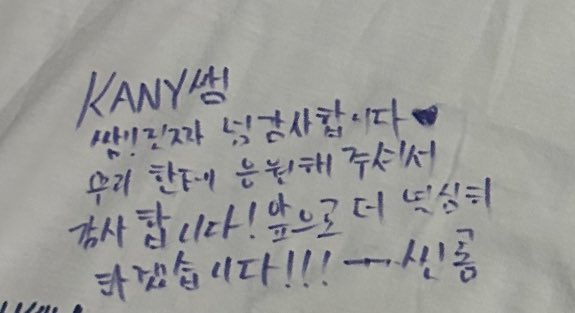 KANY쌤
쌤! 진짜 넘 감사합니다♥
우리 한테 응원해 주셔서
감사합니다! 앞으로 더 열심히
하겠습니다!!! — 신롬